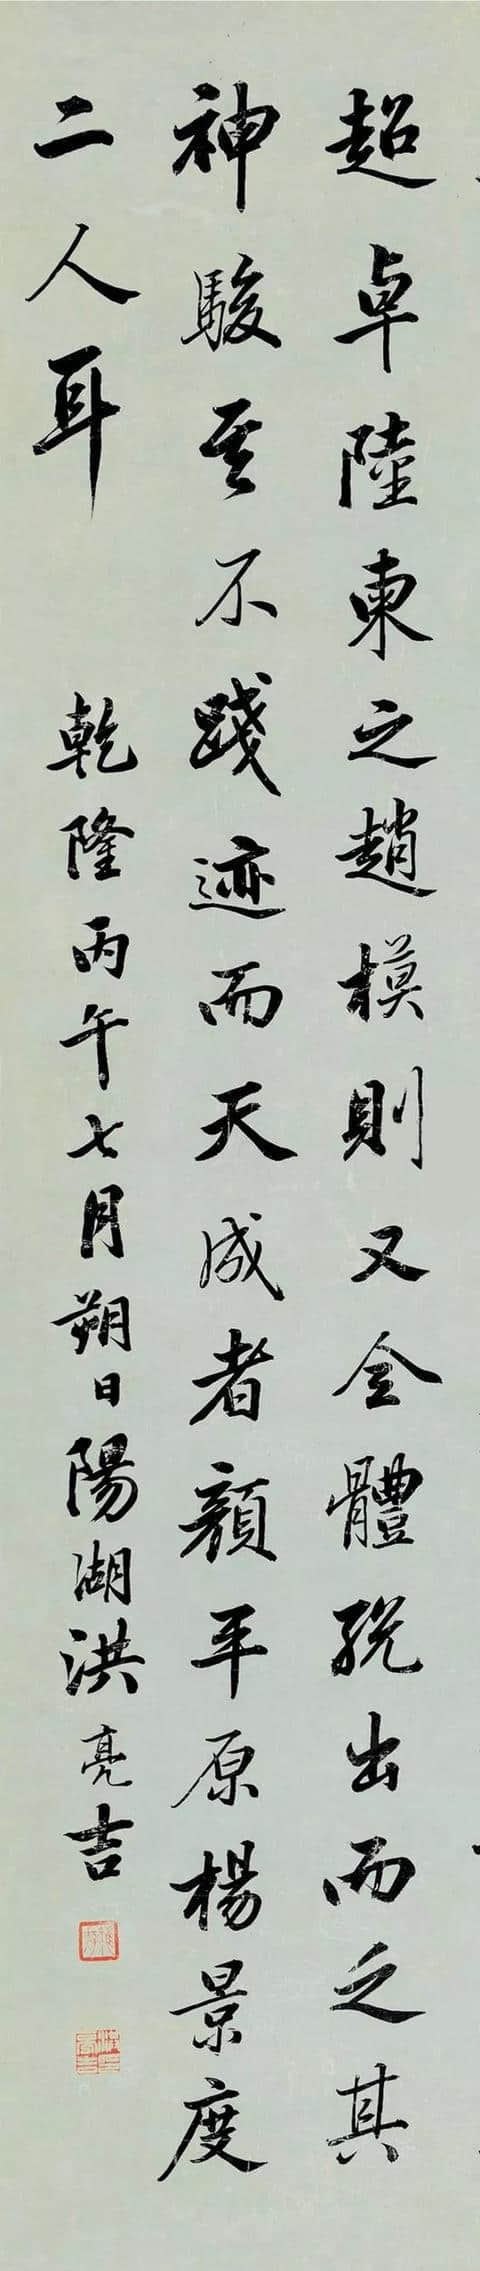 超卓陸東之趙模則又全體脱出而乏其
神駿至不踐迹而天成者顏平原楊景度
二人耳　乾隆丙午七月朔日陽湖洪亮吉